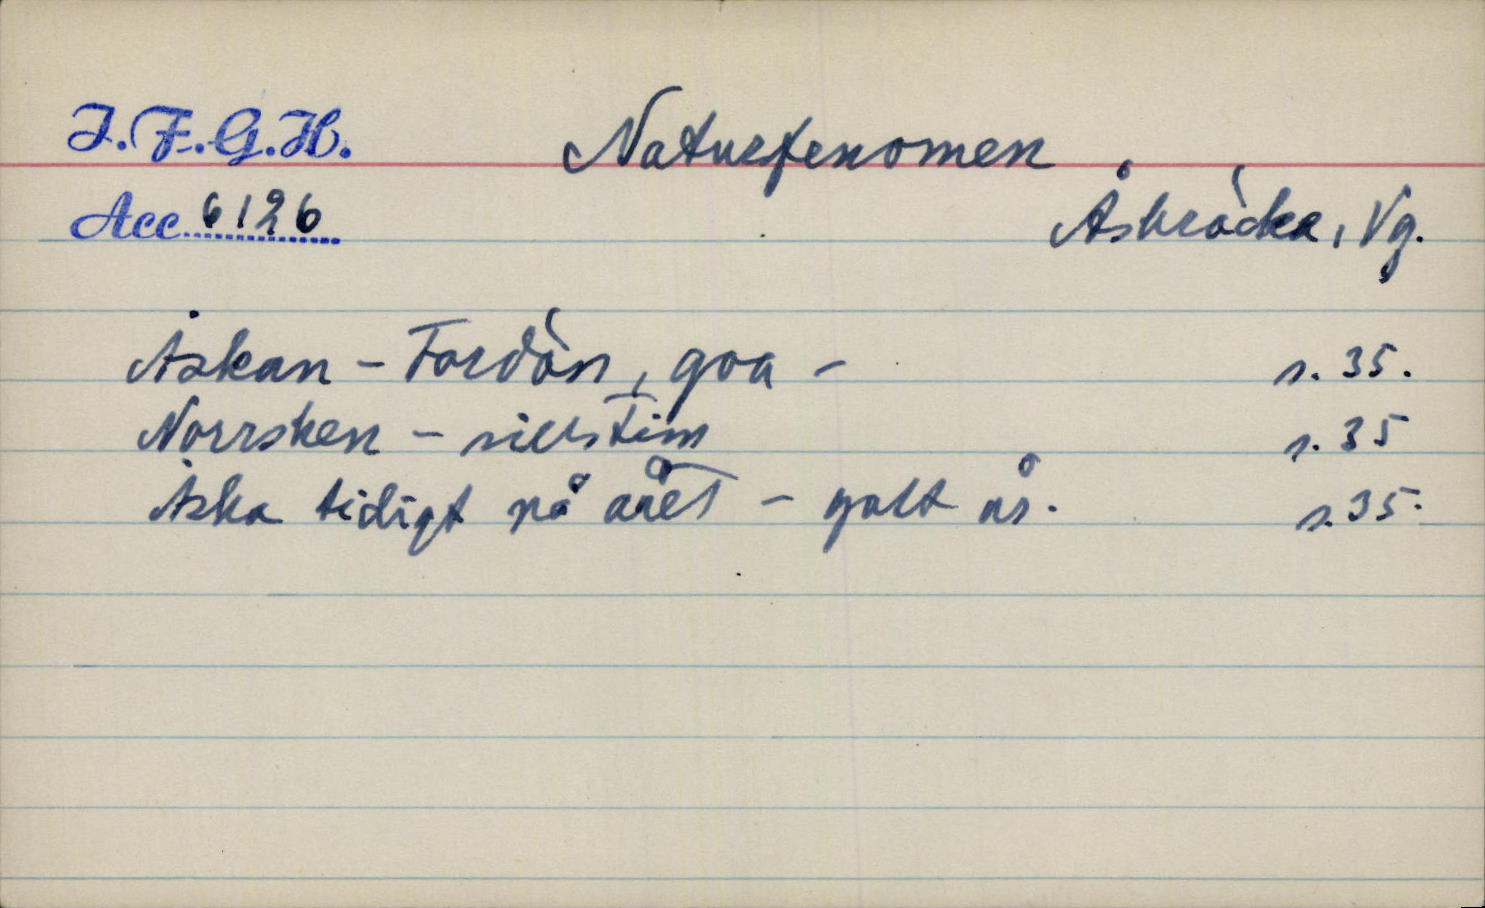 I.F.G.H.
Naturfenomen
Acc 6126
Åsbräcka, Vg.
Åskan – Tordön, goa –
s. 35.
Norrsken – sillstim
s. 35
Åska tidigt på året – gott år.
s. 35.